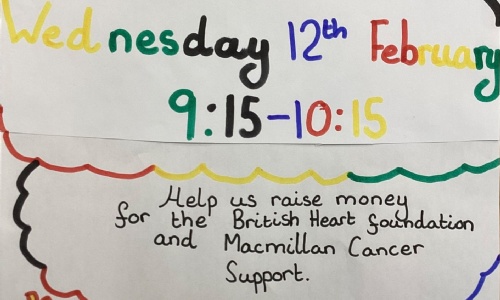 Wednesday 12th February
9:15-10:15
Help us raise money
for the British Heart foundation
and Macmillan Cancer
Support.